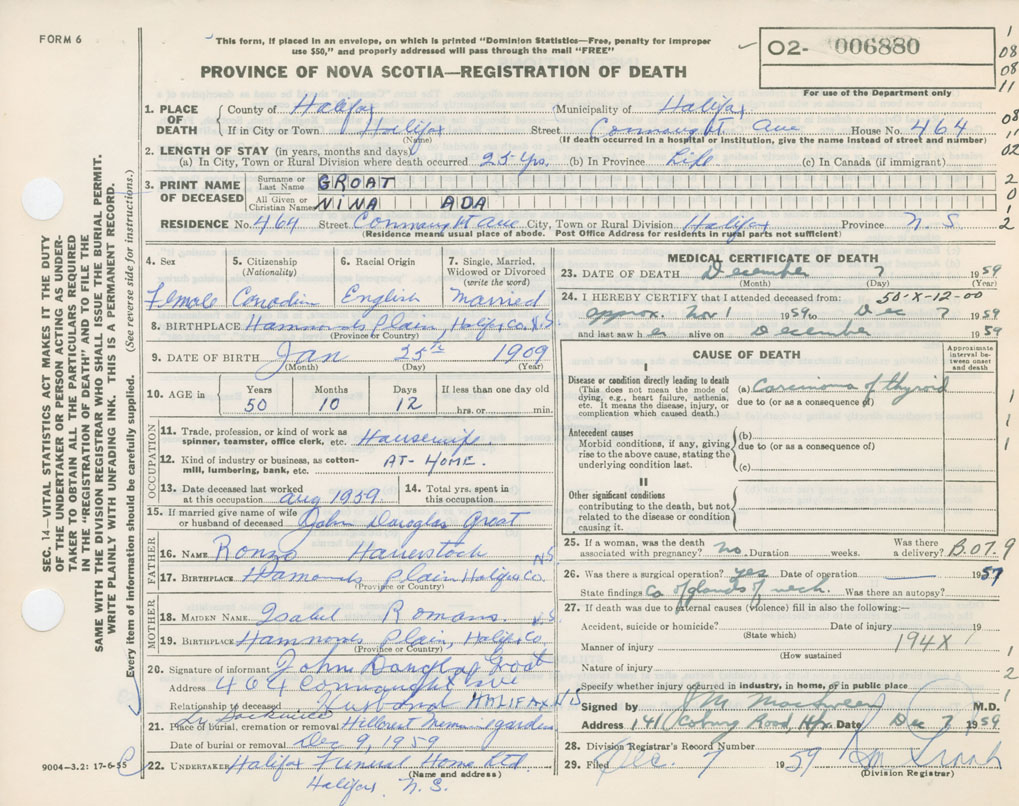 FORM 6
This form, if placed in an envelope, on which is printed "Dominion Statistics—Free, penalty for improper
use $50," and properly addressed will pass through the mail "FREE"
O2- 006880
For use of the Department only
PROVINCE OF NOVA SCOTIA—REGISTRATION OF DEATH
1. PLACE OF DEATH County of Halifax Municipality of Halifax
If in City or Town Halifax Street Connaught Ave House No. 464
(Name) (If death occurred in a hospital or institution, give the name instead of street and number)
2. LENGTH OF STAY (in years, months and days)
(a) In City, Town or Rural Division where death occurred 25 Yrs. (b) In Province Life (c) In Canada (if immigrant)
3. PRINT NAME OF DECEASED
Surname or Last Name GROAT
All Given or Christian Names NINA ADA
RESIDENCE No. 464 Street Connaught Ave City, Town or Rural Division Halifax Province N.S
(Residence means usual place of abode. Post Office Address for residents in rural parts not sufficient)
4. Sex Female
5. Citizenship (Nationality) Canadian
6. Racial Origin English
7. Single, Married, Widowed or Divorced (write the word) Married
8. BIRTHPLACE Hammonds Plain, Halifax Co. N.S.
(Province or Country)
9. DATE OF BIRTH Jan 25th 1909
(Month) (Day) (Year)
10. AGE in Years 50 Months 10 Days 12 If less than one day old
hrs. or min.
OCCUPATION
11. Trade, profession, or kind of work as
spinner, teamster, office clerk, etc. Housewife
12. Kind of industry or business, as cotton-
mill, lumbering, bank, etc. AT-HOME.
13. Date deceased last worked
at this occupation Aug 1959
14. Total yrs. spent in
this occupation
15. If married give name of wife
or husband of deceased John Douglas Groat
FATHER
16. NAME
17. BIRTHPLACE Hammonds Plain Halifax Co. N.S
(Province or Country)
MOTHER
18. MAIDEN NAME Isabel Romans
19. BIRTHPLACE Hammonds Plain, Halifax Co. N.S.
(Province or Country)
20. Signature of informant John Douglas Groat
Address 464 Connaught Ave
Relationship to deceased Husband HALIFAX N S
21. Place of burial, cremation or removal Hillcrest Memorial gardens
Date of burial or removal Dec 9, 1959
22. UNDERTAKER Halifax Funeral Home Ltd.
(Name and address)
Halifax, N. S.
MEDICAL CERTIFICATE OF DEATH
23. DATE OF DEATH December 7 1959
(Month) (Day) (Year)
24. I HEREBY CERTIFY that I attended deceased from: 50-X-12-00
approx. Nov 1 1959 to Dec 7 1959
and last saw her alive on December 1959
CAUSE OF DEATH
Approximate interval between onset and death
I
Disease or condition directly leading to death
(This does not mean the mode of
dying, e.g., heart failure, asthenia,
etc. It means the disease, injury, or
complication which caused death.)
(a) Carcinoma of thyroid
due to (or as a consequence of)
Antecedent causes
Morbid conditions, if any, giving
rise to the above cause, stating the
underlying condition last.
(b)
due to (or as a consequence of)
(c)
II
Other significant conditions
contributing to the death, but not
related to the disease or condition
causing it.
25. If a woman, was the death
associated with pregnancy? no. Duration weeks. Was there
a delivery?
26. Was there a surgical operation? yes Date of operation 1957
State findings Ca of glands of neck. Was there an autopsy?
27. If death was due to external causes (violence) fill in also the following:—
Accident, suicide or homicide? Date of injury 19
(State which)
Manner of injury 194X
(How sustained
Nature of injury
Specify whether injury occurred in industry, in home, or in public place
Signed by M.D.
Address 141 Coburg Road, Hfx. Date Dec 7 1959
28. Division Registrar's Record Number
29. Filed Dec. 9 1959
(Division Registrar)
SEC. 14—VITAL STATISTICS ACT MAKES IT THE DUTY
OF THE UNDERTAKER OR PERSON ACTING AS UNDER-
TAKER TO OBTAIN ALL THE PARTICULARS REQUIRED
IN THE "REGISTRATION OF DEATH" AND TO FILE THE
SAME WITH THE DIVISION REGISTRAR WHO SHALL ISSUE THE BURIAL PERMIT.
WRITE PLAINLY WITH UNFADING INK. THIS IS A PERMANENT RECORD.
Every item of information should be carefully supplied. (See reverse side for instructions.)
9004—3.2: 17-6-55